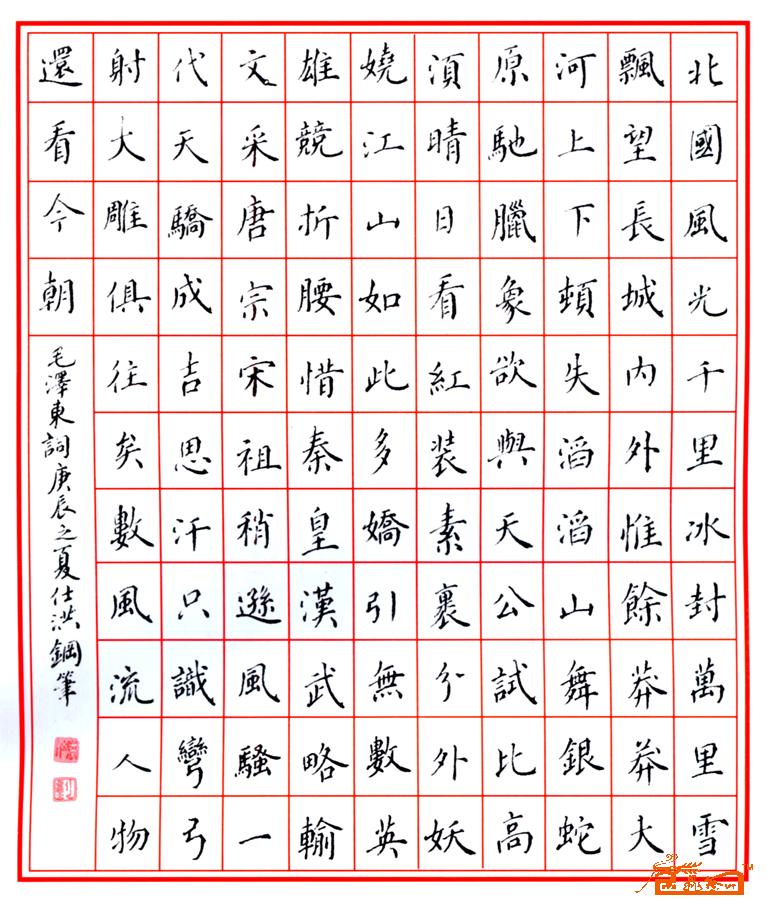 北國風光千里冰封萬里雪
飄望長城內外惟餘莽莽大
河上下頓失滔滔山舞銀蛇
原馳臘象欲與天公試比高
須晴日看紅装素裹分外妖
嬈江山如此多嬌引無數英
雄競折腰惜秦皇漢武略輸
文采唐宗宋祖稍遜風騷一
代天驕成吉思汗只識彎弓
射大雕俱往矣數風流人物
還看今朝
毛澤東詞庚辰之夏仕洪鋼筆